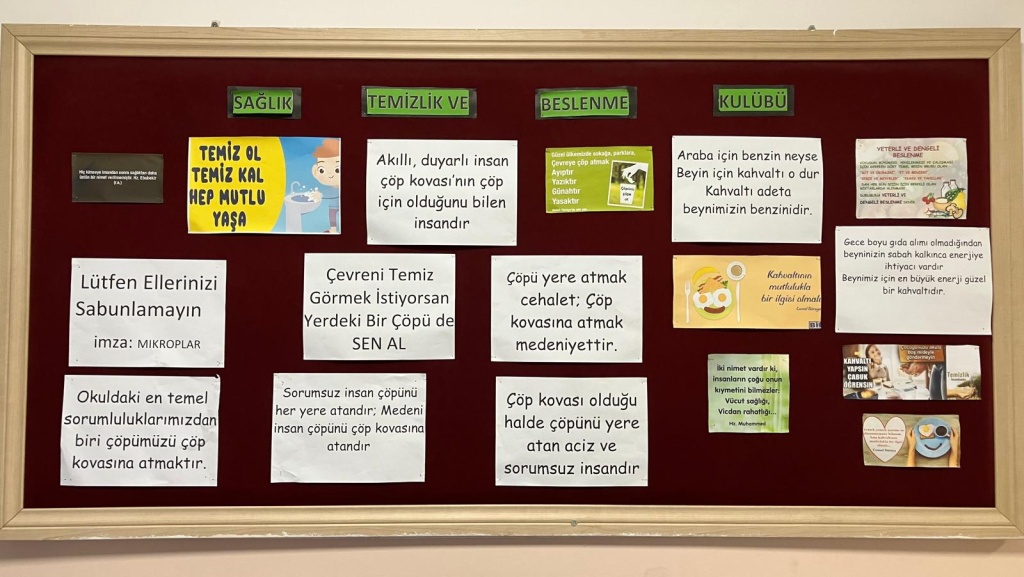 SAĞLIK
TEMİZLİK VE
BESLENME
KULÜBÜ
Hz. Ebubekir
(r.a.)
TEMİZ OL
TEMİZ KAL
HEP MUTLU
YAŞA
Akıllı, duyarlı insan
çöp kovası'nın çöp
için olduğunu bilen
insandır
Güzel ülkemizde sokağa, parklara,
Çevreye çöp atmak
Ayıptır
Yazıktır
Günahtır
Yasaktır
Araba için benzin neyse
Beyin için kahvaltı o dur
Kahvaltı adeta
beynimizin benzinidir.
YETERLİ VE DENGELİ
BESLENME
Lütfen Ellerinizi
Sabunlamayın
imza: MIKROPLAR
Çevreni Temiz
Görmek İstiyorsan
Yerdeki Bir Çöpü de
SEN AL
Çöpü yere atmak
cehalet; Çöp
kovasına atmak
medeniyettir.
Kahvaltının
mutlulukla
bir ilgisi olmalı
Gece boyu gıda alımı olmadığından
beyninizin sabah kalkınca enerjiye
ihtiyacı vardır
Beynimiz için en büyük enerji güzel
bir kahvaltıdır.
Okuldaki en temel
sorumluluklarımızdan
biri çöpümüzü çöp
kovasına atmaktır.
Sorumsuz insan çöpünü
her yere atandır; Medeni
insan çöpünü çöp kovasına
atandır
Çöp kovası olduğu
halde çöpünü yere
atan aciz ve
sorumsuz insandır
İki nimet vardır ki,
insanların çoğu onun
kıymetini bilmezler:
Vücut sağlığı,
Vicdan rahatlığı...
Hz. Muhammed
KAHVALTI
YAPSIN
ÇABUK
ÖĞRENSİN
Temizlik